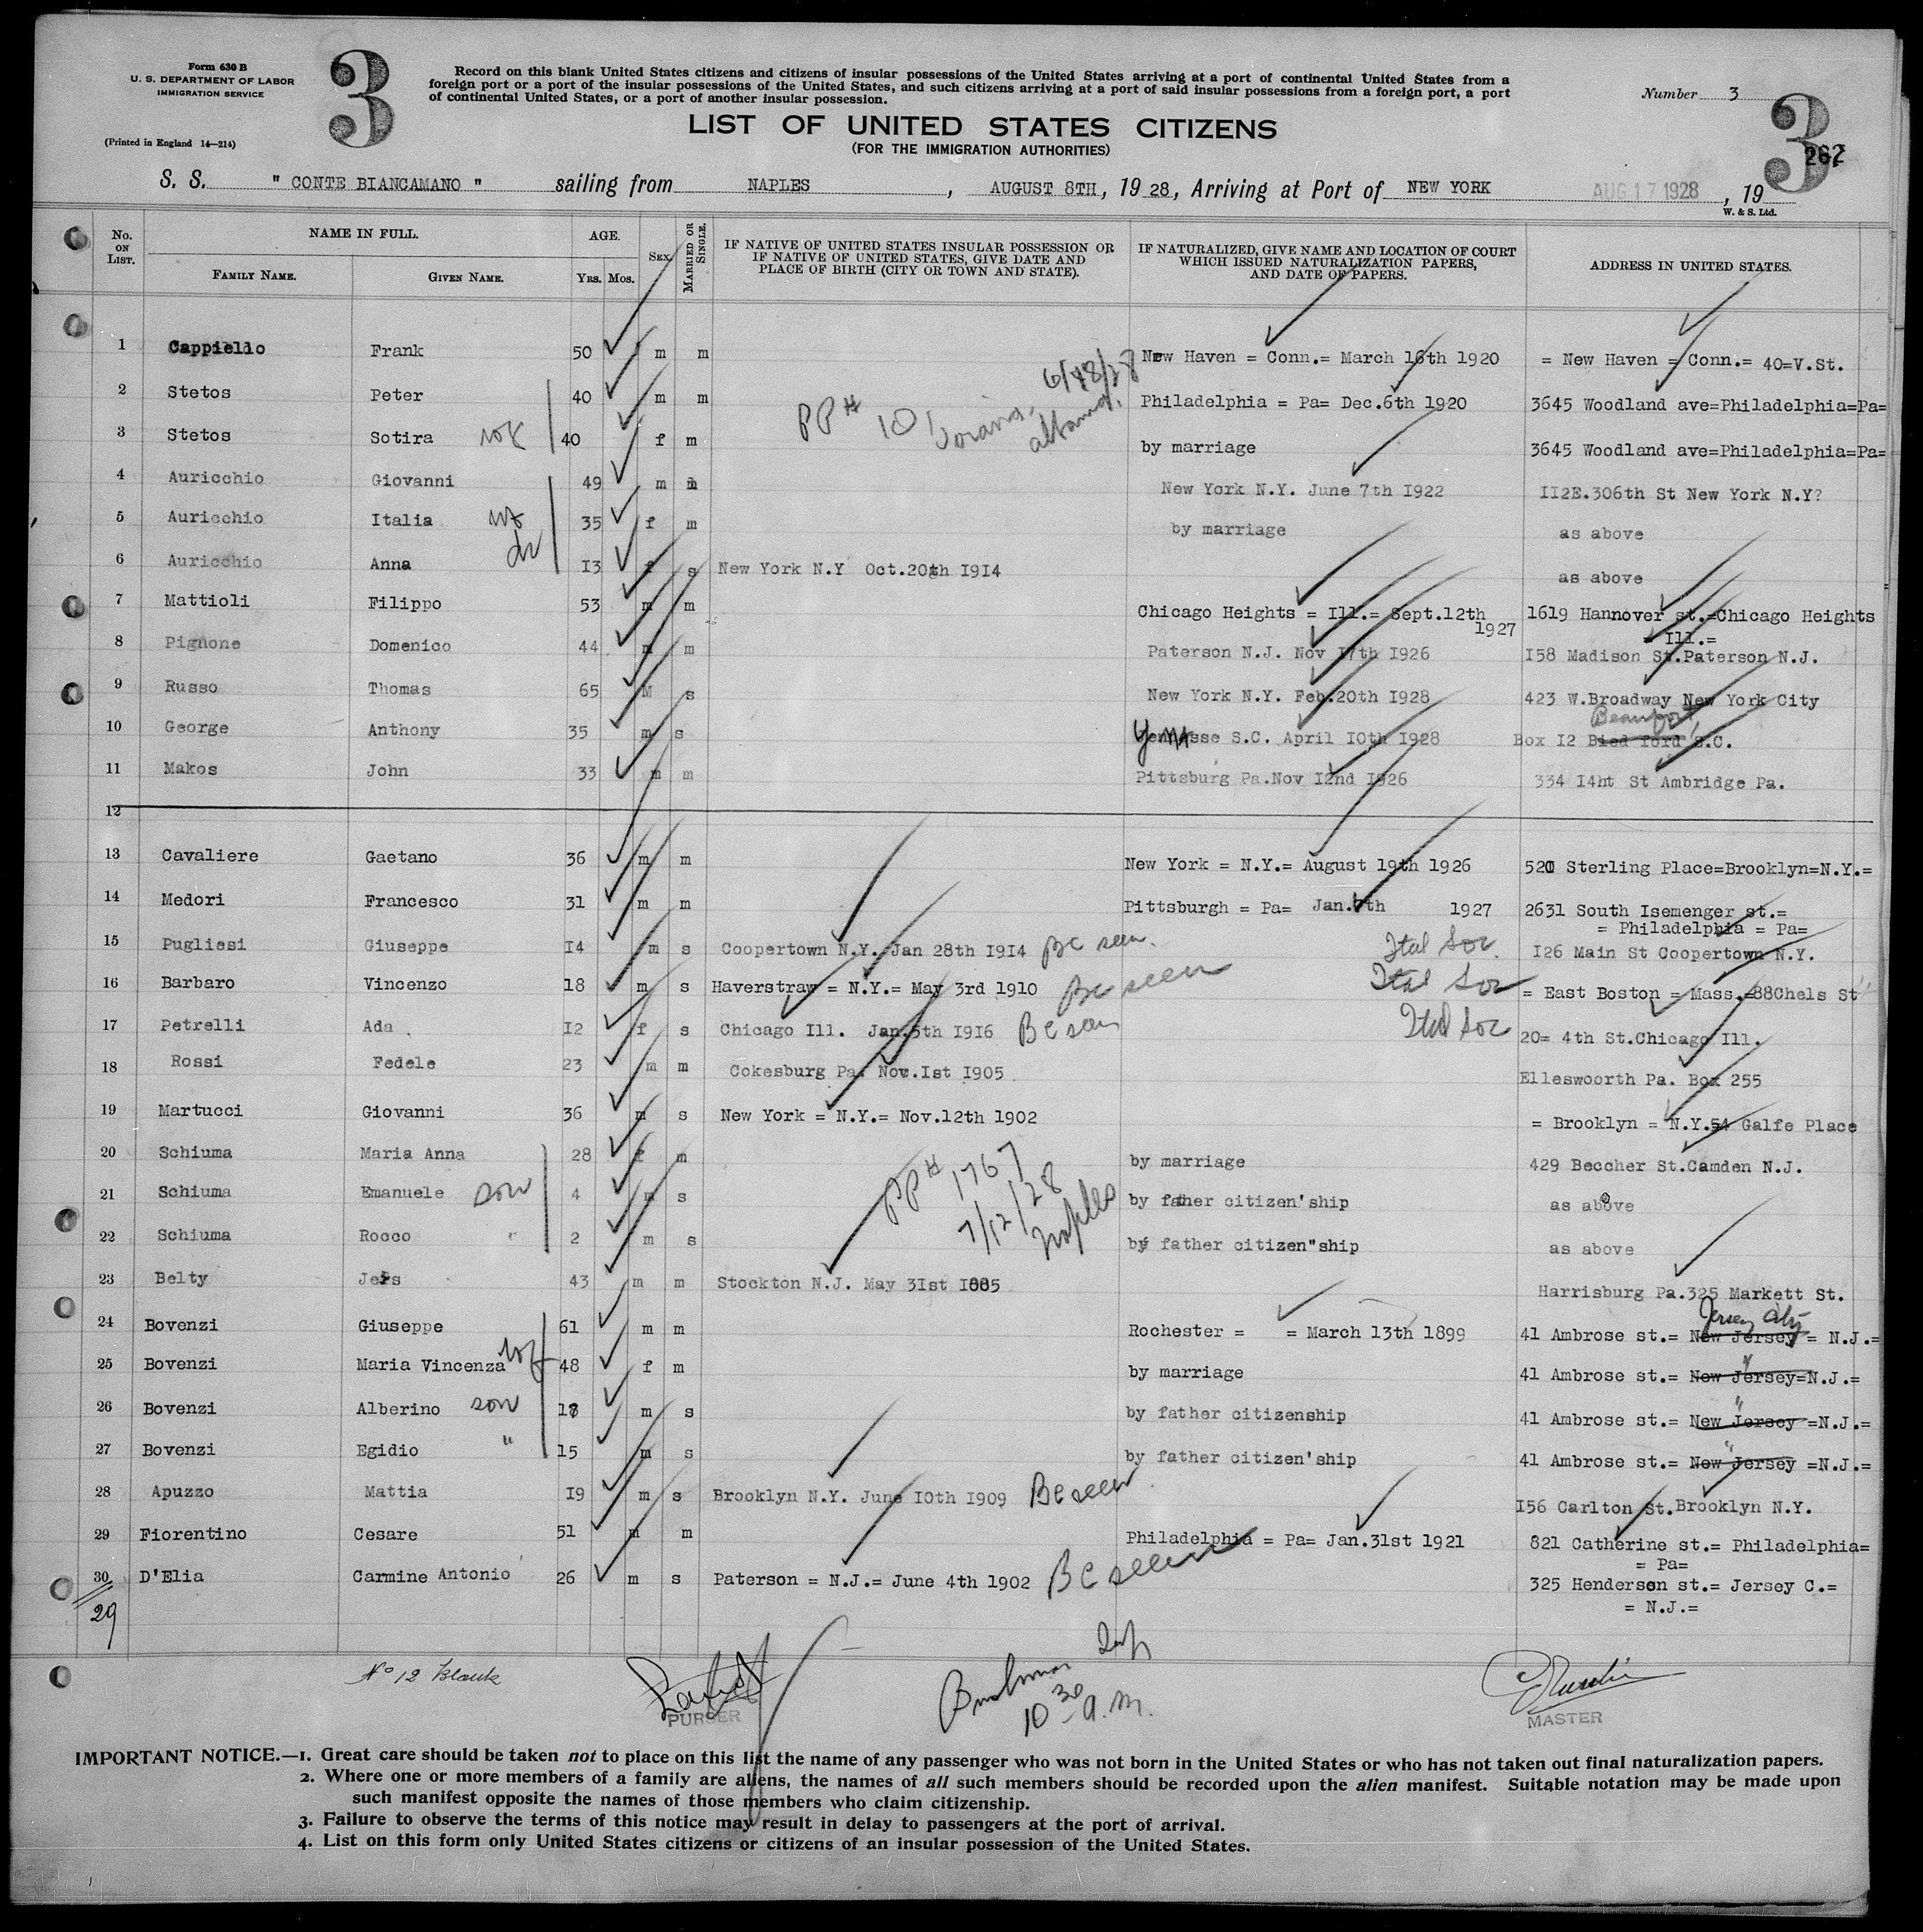 Form 630 B
U. S. DEPARTMENT OF LABOR
IMMIGRATION SERVICE
(Printed in England 14—214)
3
Record on this blank United States citizens and citizens of insular possessions of the United States arriving at a port of continental United States from a
foreign port or a port of the insular possessions of the United States, and such citizens arriving at a port of said insular possessions from a foreign port, a port
of continental United States, or a port of another insular possession.
Number 3
3
262
LIST OF UNITED STATES CITIZENS
(FOR THE IMMIGRATION AUTHORITIES)
S. S. " CONTE BIANCAMANO " sailing from NAPLES , AUGUST 8TH, 1928, Arriving at Port of NEW YORK AUG 17 1928 , 19
W. & S. Ltd.
No. ON LIST. NAME IN FULL. AGE. SEX. MARRIED OR SINGLE. IF NATIVE OF UNITED STATES INSULAR POSSESSION OR IF NATIVE OF UNITED STATES, GIVE DATE AND PLACE OF BIRTH (CITY OR TOWN AND STATE). IF NATURALIZED, GIVE NAME AND LOCATION OF COURT WHICH ISSUED NATURALIZATION PAPERS, AND DATE OF PAPERS. ADDRESS IN UNITED STATES.
FAMILY NAME. GIVEN NAME. YRS. MOS.
1 Cappiello Frank 50 m m New Haven = Conn.= March 16th 1920 = New Haven = Conn.= 40=V.St.
2 Stetos Peter 40 m m PP# 101 6/18/28 Philadelphia = Pa= Dec.6th 1920 3645 Woodland ave=Philadelphia=Pa=
3 Stetos Sotira wf 40 f m by marriage 3645 Woodland ave=Philadelphia=Pa=
4 Auricchio Giovanni 49 m m New York N.Y. June 7th I922 II2E.306th St New York N.Y?
5 Auricchio Italia wf 35 f m by marriage as above
6 Auricchio Anna da I3 f s New York N.Y Oct.20th I9I4 as above
7 Mattioli Filippo 53 m m Chicago Heights = Ill.= Sept.12th 1927 1619 Hannover st.=Chicago Heights
= Ill.=
8 Pignone Domenico 44 m m Paterson N.J. Nov I7th I926 I58 Madison St.Paterson N.J.
9 Russo Thomas 65 M s New York N.Y. Feb.20th I928 423 W.Broadway New York City
10 George Anthony 35 m s Yemasse S.C. April IOth I928 Box I2 Bied ford S.C.
Beaufort
11 Makos John 33 m m Pittsburg Pa.Nov I2nd I926 334 I4ht St Ambridge Pa.
12
13 Cavaliere Gaetano 36 m m New York = N.Y.= August 19th 1926 520 Sterling Place=Brooklyn=N.Y.=
14 Medori Francesco 31 m m Pittsburgh = Pa= Jan.7th 1927 2631 South Isemenger st.=
= Philadelphia = Pa=
15 Pugliesi Giuseppe I4 m s Coopertown N.Y. Jan 28th I9I4 BC seen. Ital Soc. I26 Main St Coopertown N.Y.
16 Barbaro Vincenzo 18 m s Haverstraw = N.Y.= May 3rd 1910 BC seen Ital Soc = East Boston = Mass.=88Chels St
17 Petrelli Ada I2 f s Chicago Ill. Jan.5th I9I6 BC seen Ital Soc 20= 4th St.Chicago Ill.
18 Rossi Fedele 23 m m Cokesburg Pa. Nov.Ist I905 Ellesworth Pa. Box 255
19 Martucci Giovanni 36 m s New York = N.Y.= Nov.12th 1902 = Brooklyn = N.Y.54 Galfe Place
20 Schiuma Maria Anna 28 f m PP# 1767 by marriage 429 Beccher St.Camden N.J.
21 Schiuma Emanuele son 4 m s 7/12/28 by father citizen'ship as above
22 Schiuma Rocco " 2 m s Naples by father citizen"ship as above
23 Belty Jers 43 m m Stockton N.J. May 3Ist I885 Harrisburg Pa.325 Markett St.
24 Bovenzi Giuseppe 61 m m Rochester = = March 13th 1899 41 Ambrose st.= New Jersey = N.J.=
Jersey City
25 Bovenzi Maria Vincenza wf 48 f m by marriage 41 Ambrose st.= New Jersey=N.J.=
26 Bovenzi Alberino son 18 m s by father citizenship 41 Ambrose st.= New Jersey =N.J.=
27 Bovenzi Egidio " 15 m s by father citizen'ship 41 Ambrose st.= New Jersey =N.J.=
28 Apuzzo Mattia I9 m s Brooklyn N.Y. June IOth I909 BC seen I56 Carlton St.Brooklyn N.Y.
29 Fiorentino Cesare 51 m m Philadelphia = Pa= Jan.31st 1921 821 Catherine st.= Philadelphia=
= Pa=
30 D'Elia Carmine Antonio 26 m s Paterson = N.J.= June 4th 1902 BC seen 325 Henderson st.= Jersey C.=
= N.J.=
29
No 12 blank
PURSER
10 30 a.m.
MASTER
IMPORTANT NOTICE.—1. Great care should be taken not to place on this list the name of any passenger who was not born in the United States or who has not taken out final naturalization papers.
2. Where one or more members of a family are aliens, the names of all such members should be recorded upon the alien manifest. Suitable notation may be made upon
such manifest opposite the names of those members who claim citizenship.
3. Failure to observe the terms of this notice may result in delay to passengers at the port of arrival.
4. List on this form only United States citizens or citizens of an insular possession of the United States.